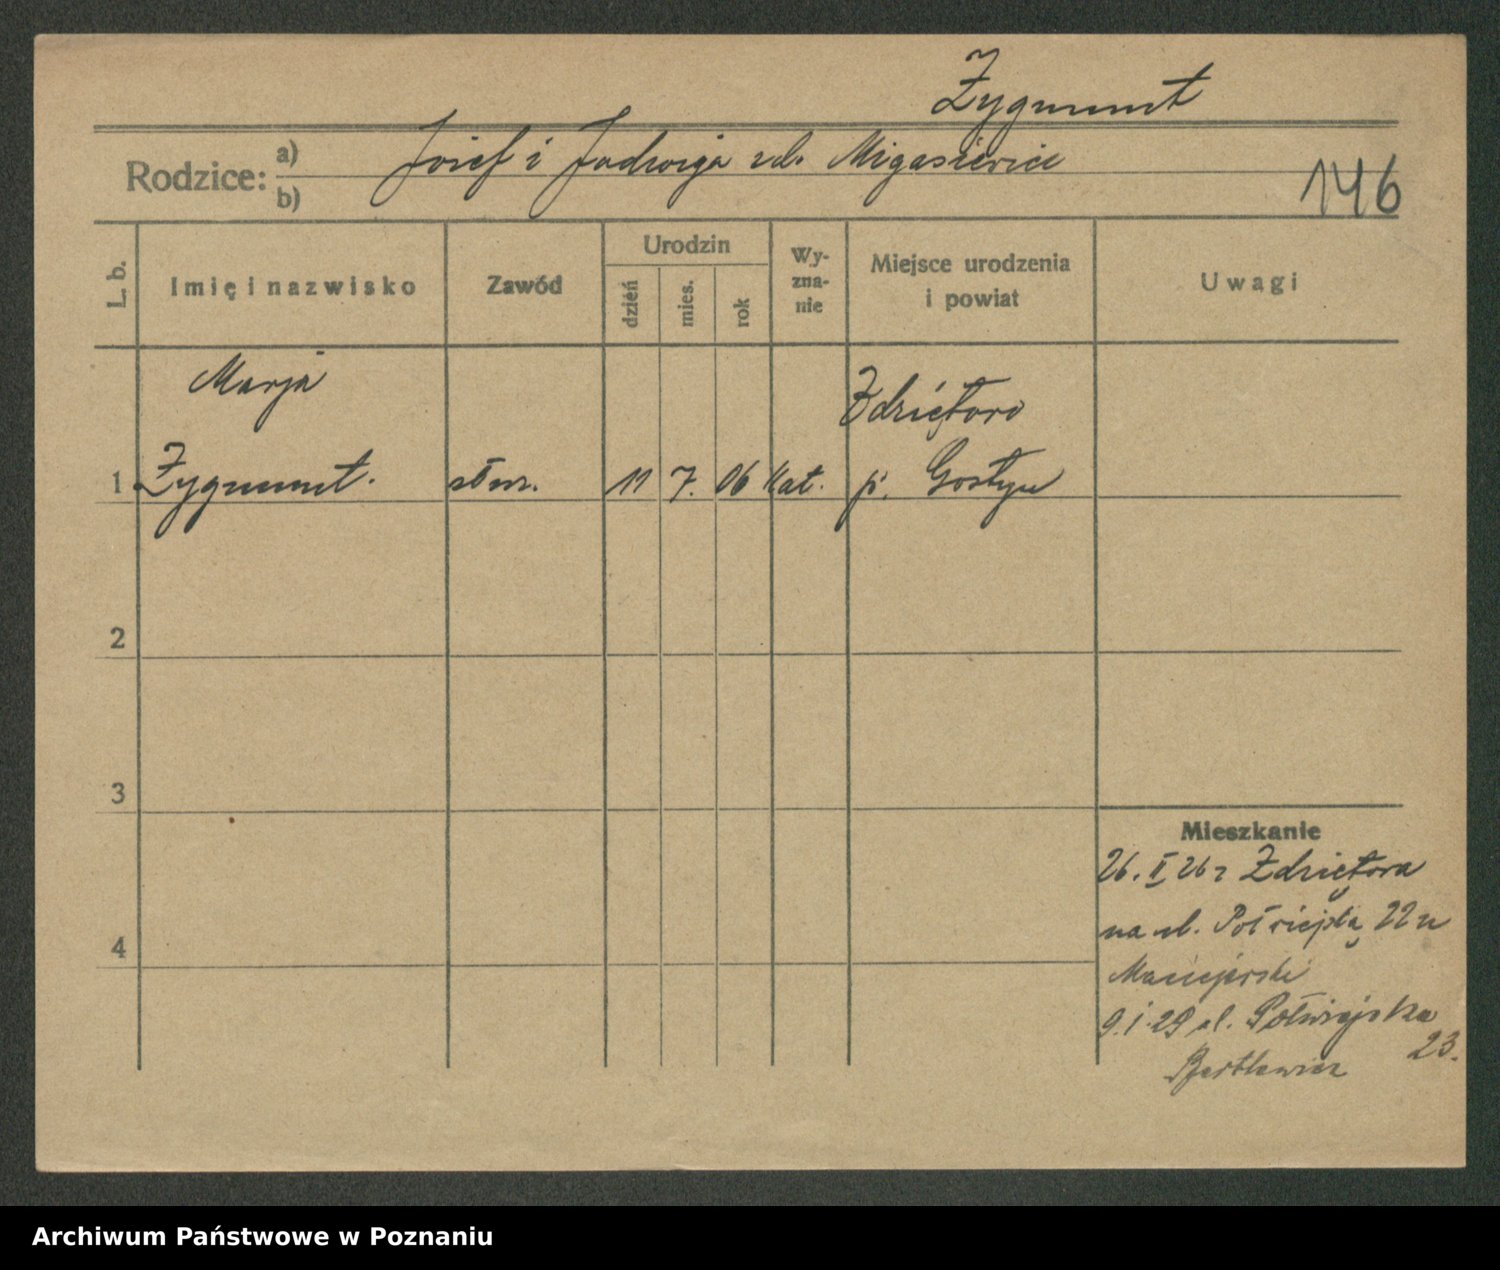 Zygmunt
Rodzice: a) b) Józef i Jadwiga zd. Migasiewicz
146
L. b.
Imię i nazwisko
Zawód
Urodzin
dzień
mies.
rok
Wy-
zna-
nie
Miejsce urodzenia
i powiat
Uwagi
Marja
Zdziętowo
1 Zygmunt. 11 7. 06 kat. p. Gostyń
2
3
4
Mieszkanie
26. II 26 z
na ul. 22 u
Maciejewski
9.1.29 ul. Półwiejska
23.
Archiwum Państwowe w Poznaniu